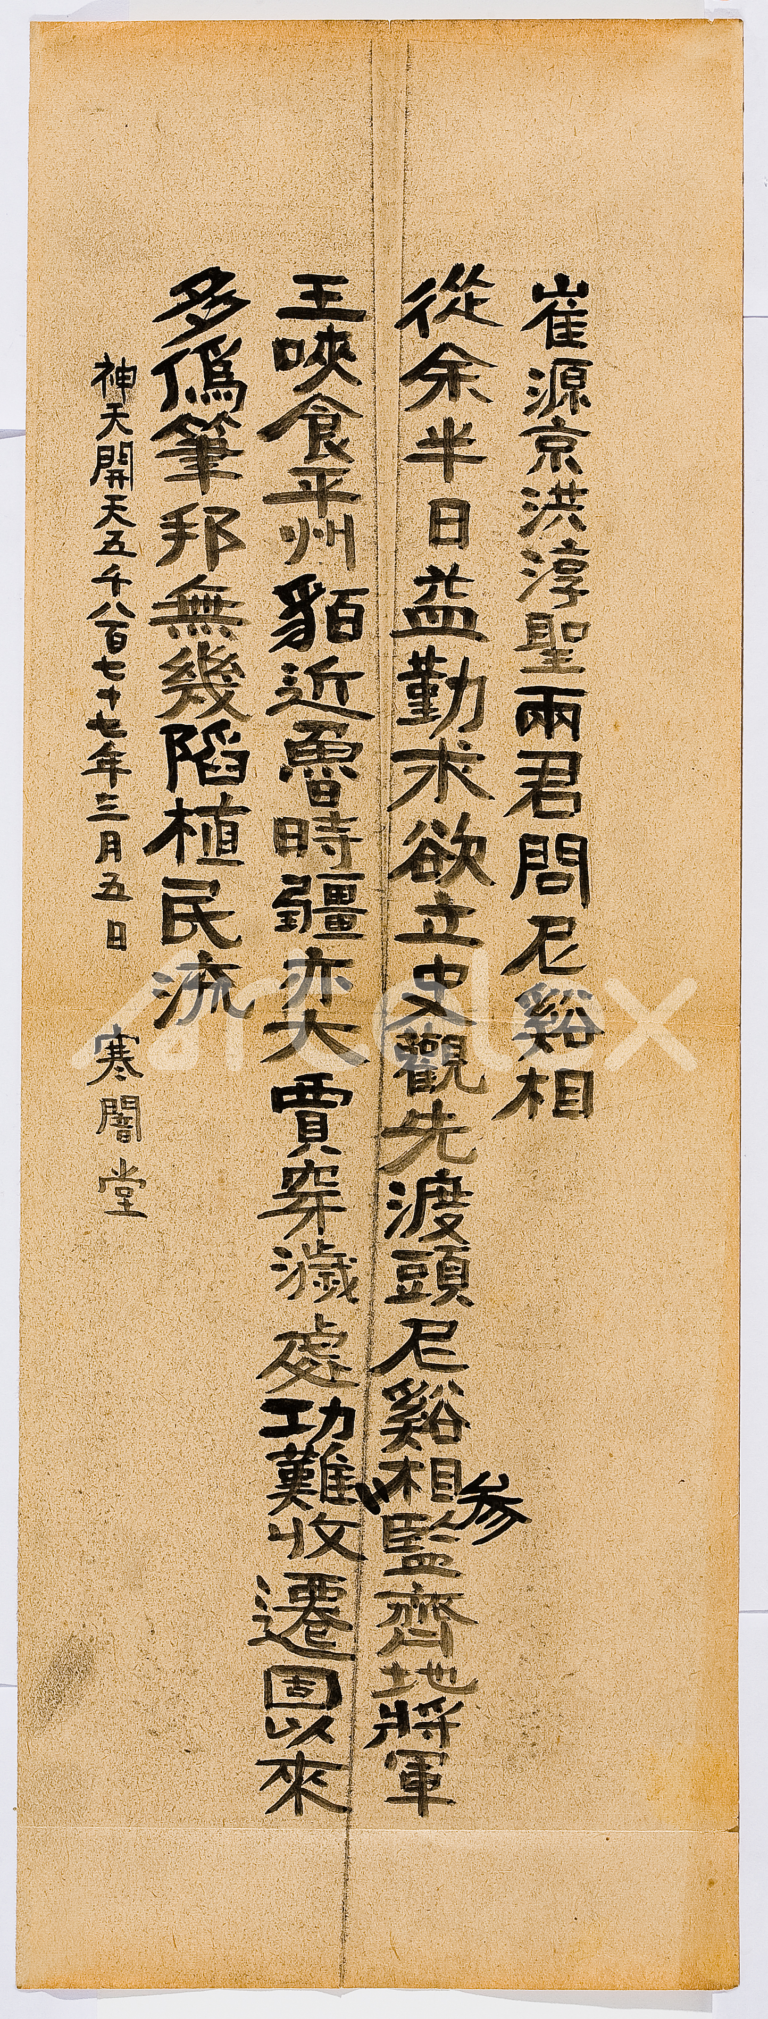 崔源京洪淳聖兩君問尼谿相
從余半日益勤求欲立史觀先渡頭尼谿相監齊地將軍
参
王唊食平州貊近魯時疆亦大賈穿濊處功難收遷固以來
多僞筆邦無幾陷植民流
神天開天五千八百七十七年三月五日 寒闇堂
artelex